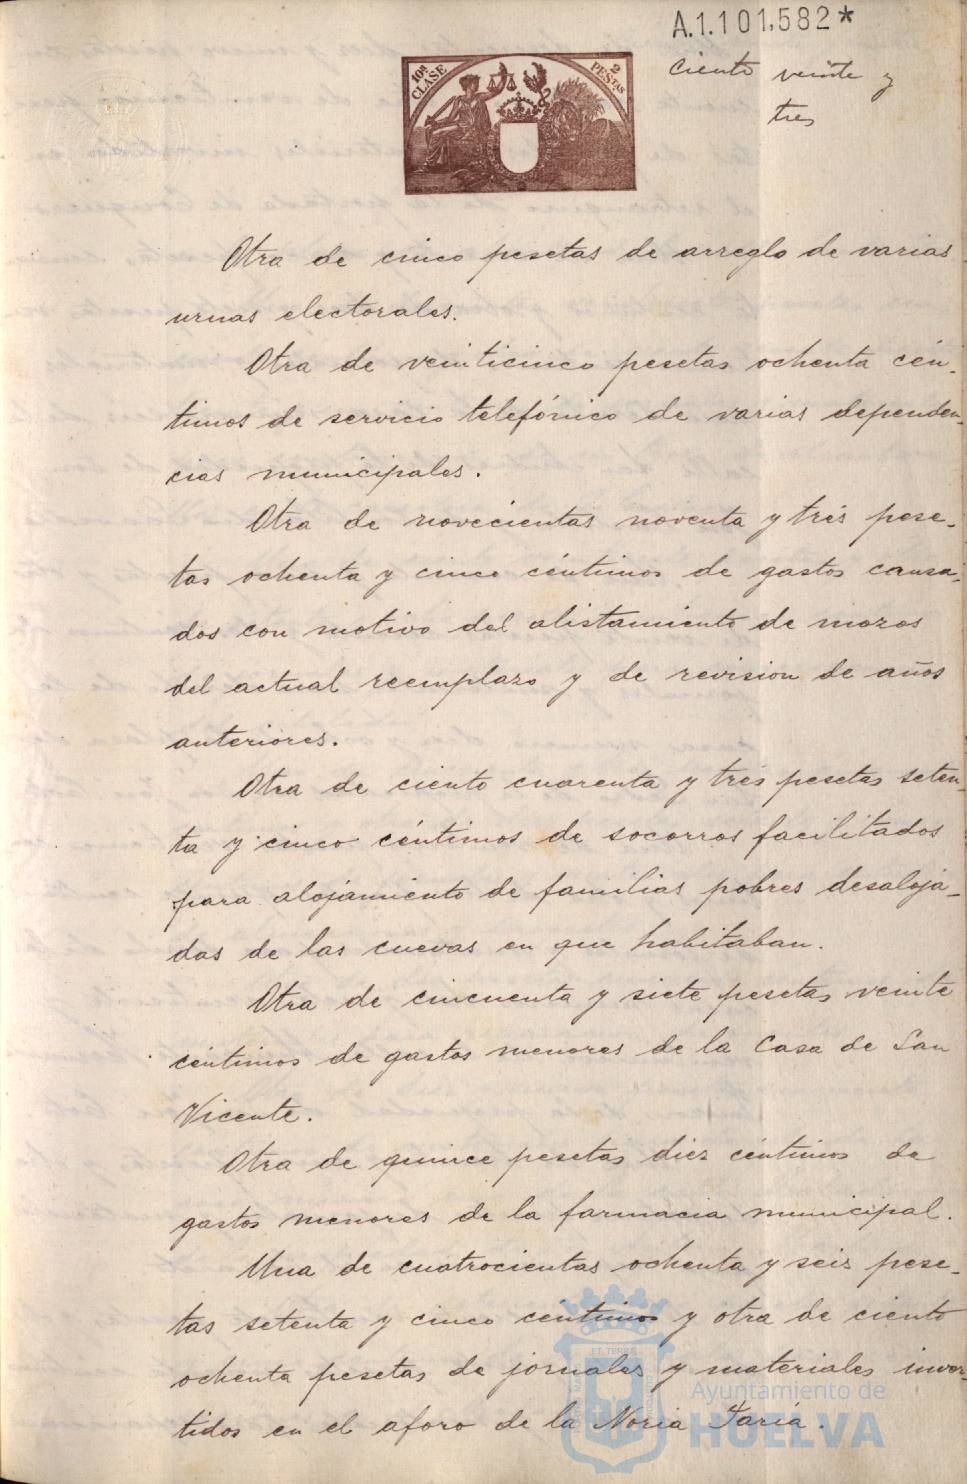 A.1.101,582*
10ª CLASE
2 PESTAS
ciento veinte y
tres
Otra de cinco pesetas de arreglo de varias
urnas electorales.
Otra de veinticinco pesetas ochenta cén-
timos de servicio telefónico de varias dependen
cias municipales.
Otra de novecientas noventa y trés pese-
tas ochenta y cinco céntimos de gastos causa-
dos con motivo del alistamiento de mozos
del actual reemplazo y de revision de años
anteriores.
Otra de ciento cuarenta y trés pesetas seten
ta y cinco céntimos de socorros facilitados
para alojamiento de familias pobres desaloja-
das de las cuevas en que habitaban.
Otra de cincuenta y siete pesetas veinte
céntimos de gastos menores de la Casa de San
Vicente.
Otra de quince pesetas diez céntimos de
gastos menores de la farmacia municipal.
Una de cuatrocientas ochenta y seis pese-
tas setenta y cinco céntimos y otra de ciento
ochenta pesetas de jornales y materiales inver-
tidos en el aforo de la Noria Faria.
Ayuntamiento de
HUELVA